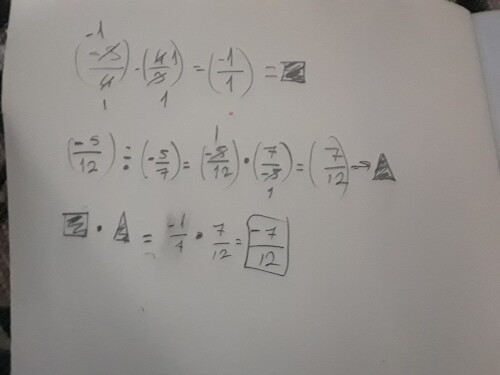 (-3/4) · (4/3) = (-1/1) = ■
(-5/12) ÷ (-5/7) = (-5/12) · (7/-5) = (7/12) → ▲
■ · ▲ = -1/1 · 7/12 = -7/12